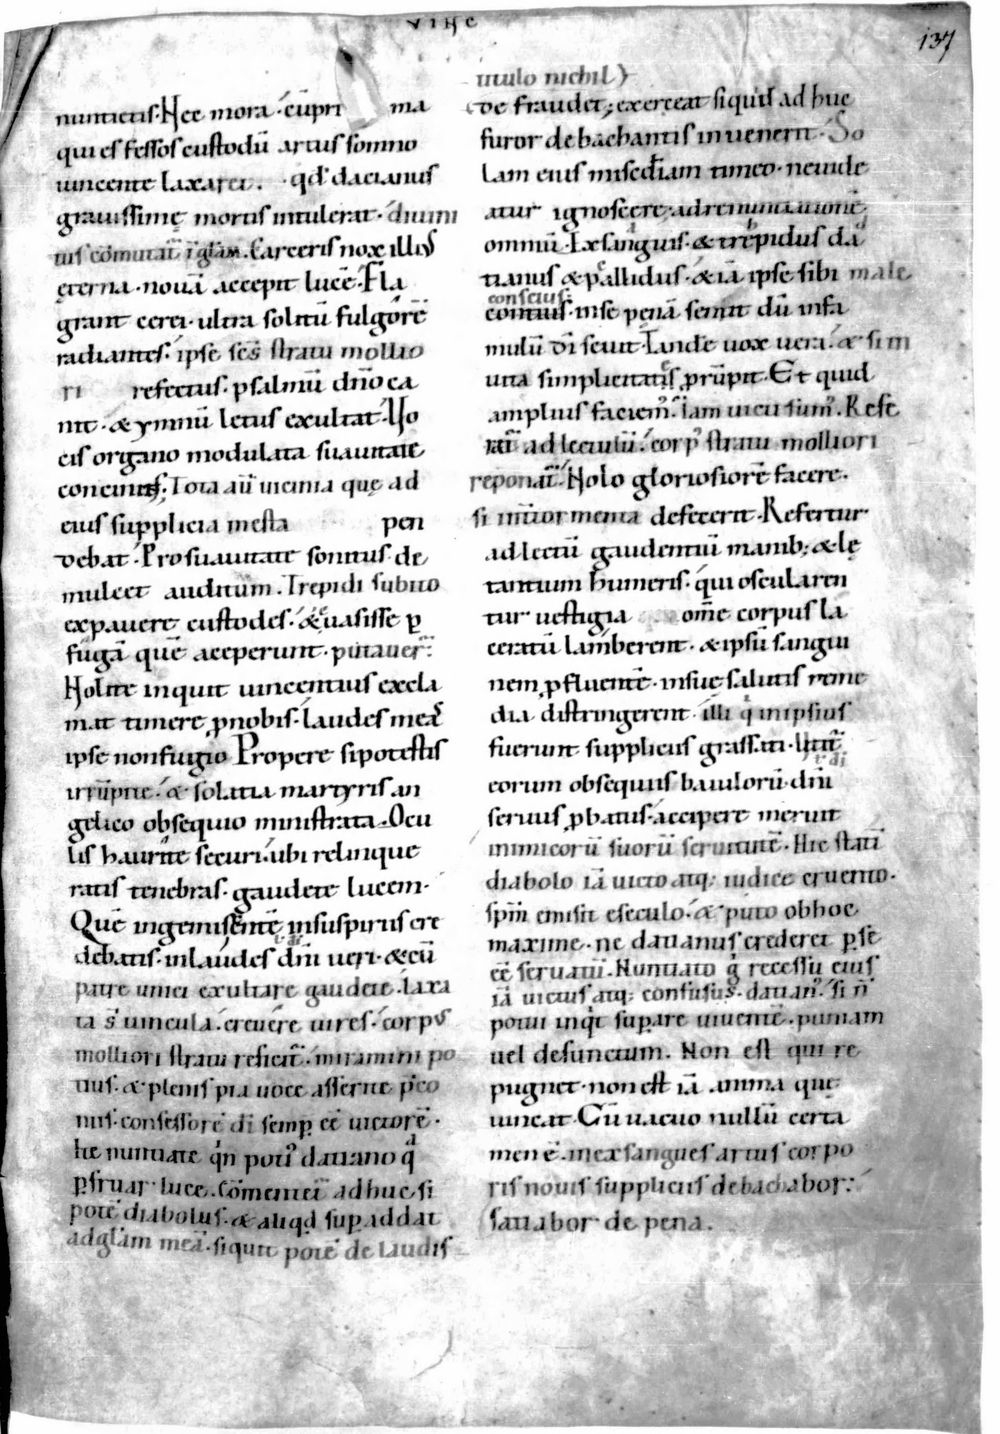 VINC
137
nuntietis. Nec mora. cũ pri ma
qui es fessos custodũ artus somno
uincente laxaret. qd̃ dacianus
grauissimę mortis intulerat. diuini
tus cõmutat̃ ĩ glam̃. Carceris nox illos
ęterna. nouã accepit lucẽ. Fla
grant cerei. ultra solitũ fulgorẽ
radiantes. ipse scs̃ stratu mollio
ri refectus. psalmũ dñο ca
nit. & ymnũ letus exultat. Uo
cis organo modulata suauitate
concinit. Tota aũ uicinia quę ad
eius supplicia mesta pen
debat. Pro suauitate sonitus de
mulcet auditum. Trepidi subito
expauere custodes. & euasisse p̱
fugã quẽ acceperunt. putauer̃.
Nolite inquit uincentius excla
mat timere p̱ nobis. laudes meas
ipse non fugio Propere si potestis
irrũpite. & solatia martyris an
gelico obsequio ministrata. Ocu
lis haurite securi. ubi relinque
ratis tenebras. gaudete lucem.
Quẽ ingemiscentẽ in suspiriis cre
debatis. in laudes dñi ueri. & cũ
patre unici exultare gaudete. Laxa
ta s̃ uincula. creuere uires. corpus
molliori stratu reficit̃. miramini po
tius. & plenis pia uoce asserite p̃co
niis. confessorẽ di semp̱ eẽ uictorẽ.
he nuntiate qñ poti daciano q̃
p̱fruar luce. Cõmentet̃ adhuc si
potẽ diabolus. & aliqd sup̱ addat
ad glam̃ meã. si quit potẽ de laudis
titulo nichil
de fraudet; exerceat siquid adhuc
furor debachantis inuenerit. So
lam eius misedĩam timeo. ne uide
atur ignoscere, ad renuntiationẽ
omniũ. Exsanguis. & trepidus da
tianus & pallidus. & iã ipse sibi male
conscius.
contius. in se penã sentit dũ in fa
mulũ di seuit. Tande uox uera. & sim
uita simplicitatis p̱rũpit. Et quid
amplius faciem̃. Iam uicti sum̃. Refe
rat̃ ad lectulũ. corp̃ stratu molliori
reponat̃. Nolo gloriosiorẽ facere.
si inter menta defecerit. Refertur
ad lectũ gaudentiũ manib; & lę
tantium humeris. qui oscularen
tur uestigia om̃e corpus la
ceratũ lamberent. & ipsũ sangui
nem p̱ fluentẽ. in sue salutis reme
dia distringerent. illi q̃ in ipsius
fuerunt suppliciis grassati. Utit̃
eorum obsequiis baiulorũ. dñi
seruus p̱batus. accipere meruit
inimicorũ suorũ seruitutẽ. Hic statĩ
diabolo iã uicto atq; iudice cruento.
spm̃ emisit e seculo. & puto ob hoc
maxime. ne datianus crederet p̱ se
eẽ seruatũ. Nuntiato g̃ recessu eius
iã uictus atq; confusus. datian̓. si ñ
potui inqt sup̱are uiuentẽ. puniam
uel defunctum. Non est qui re
pugnet. non est iã anima quę
uincat. Cũ uacuo nullũ certa
men ẽ. in exsangues artus corpo
ris nouis suppliciis debachabor.
satiabor de pena.